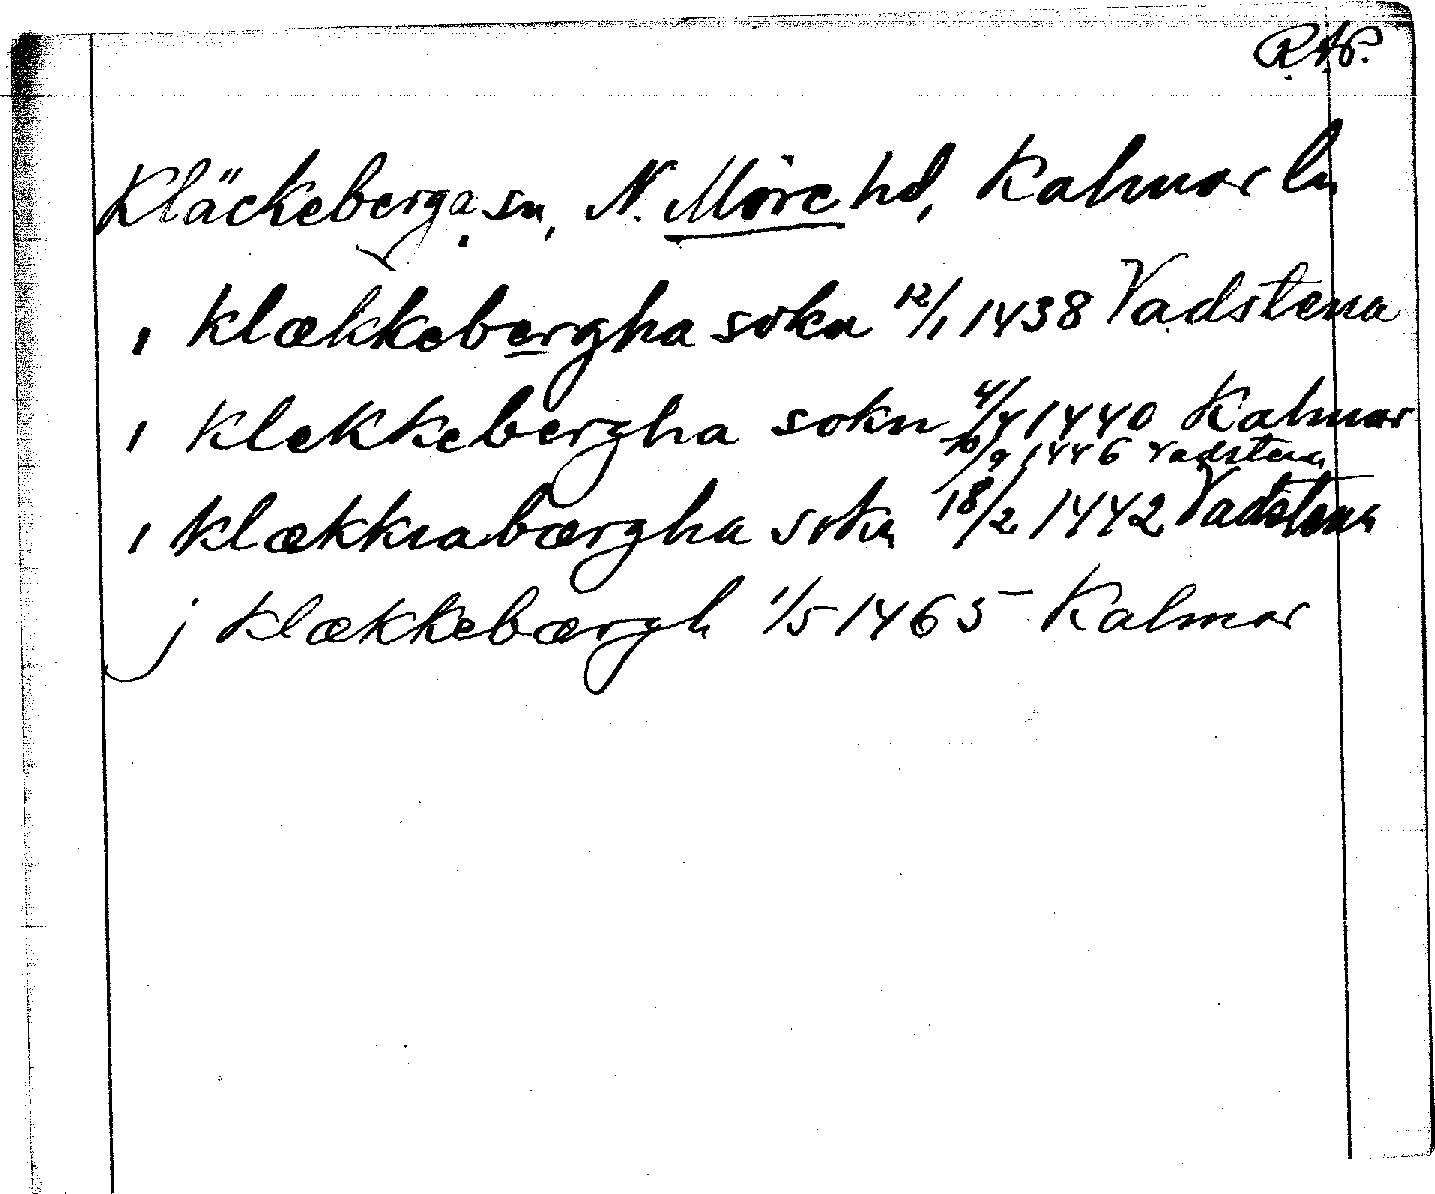 R.A.P.
Kläckeberga sn, N. Möre hd, Kalmar ln
ı klækkebergha sokn 12/1 1438 Vadstena
ı klekkebergha sokn 4/4 1440 Kalmar
10/9 1446 Vadstena
ı klækkiabærgha sokn 18/2 1442 Vadstena
j klækkebærgh 1/5 1465 Kalmar